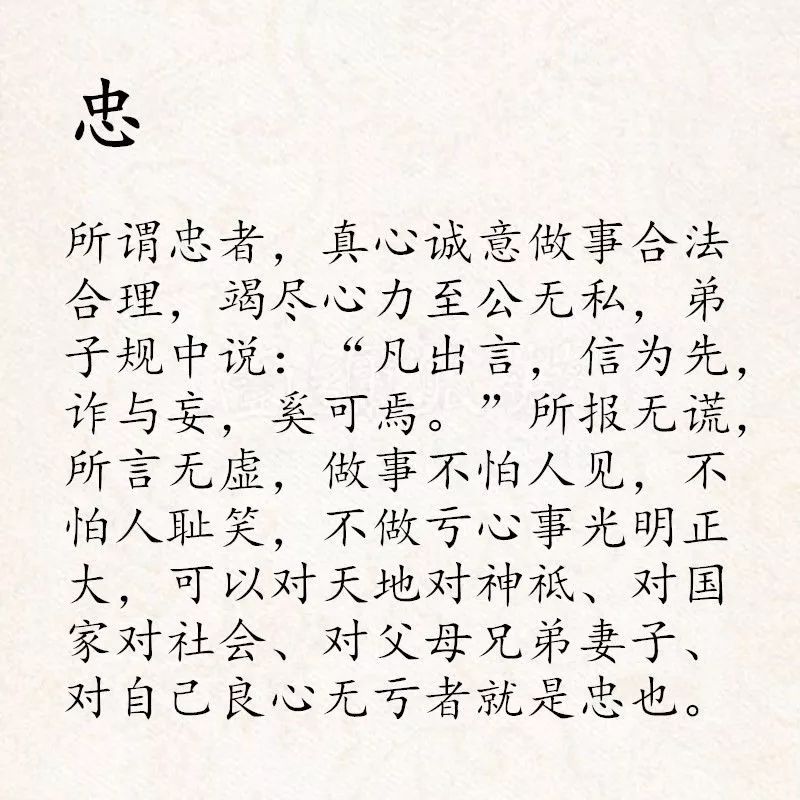 忠
所谓忠者，真心诚意做事合法
合理，竭尽心力至公无私，弟
子规中说：“凡出言，信为先，
诈与妄，奚可焉。”所报无谎，
所言无虚，做事不怕人见，不
怕人耻笑，不做亏心事光明正
大，可以对天地对神祇、对国
家对社会、对父母兄弟妻子、
对自己良心无亏者就是忠也。